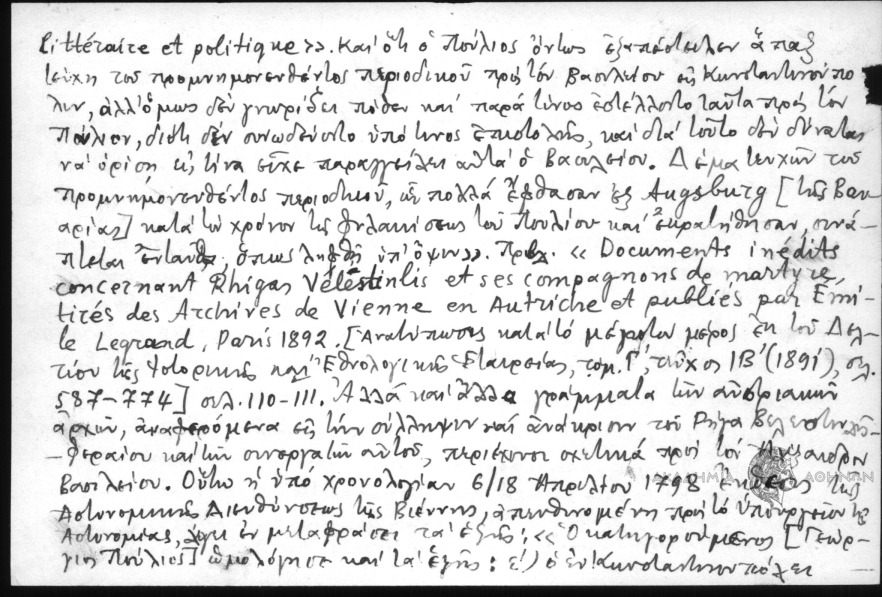 littéraire et politique». Καί ὅτι ὁ Πούλιος ὄντως ἐξαπέστειλεν ἅπαξ
τεύχη τοῦ προμνημονευθέντος περιοδικοῦ πρός τόν Βασιλείου εἰς Κωνσταντινούπο
λιν, ἀλλ' ὅμως δέν γνωρίζει πόθεν καί παρά τίνος ἐστέλλοντο ταῦτα πρός τόν
Πούλιον, διότι δέν συνωδεύοντο ὑπό τινος ἐπιστολῆς, καί διά τοῦτο δέν δύναται
νά ὁρίσῃ εἰς τίνα εἶχε παραγγείλει αὐτά ὁ Βασιλείου. Δέμα τευχῶν τοῦ
προμνημονευθέντος περιοδικοῦ, ὧν πολλά ἔφθασαν ἐξ Augsburg [τῆς Βαυ
αρίας] κατά τόν χρόνον τῆς φυλακίσεως τοῦ Πουλίου καί ἐκρατήθησαν, συνά-
πτεται ἐνταῦθα, ὅπως ληφθῇ ὑπ' ὄψιν». Πρβλ. «Documents inédits
concernant Rhigas Vélestinlis et ses compagnons de martyre,
tirés des Archives de Vienne en Autriche et publiés par Émi-
le Legrand, Paris 1892. [Ἀνατύπωσις κατά τό μέγιστον μέρος ἐκ τοῦ Δελ-
τίου τῆς Ἱστορικῆς καί Ἐθνολογικῆς Ἑταιρείας, τόμ. Γ', τεῦχος ΙΒ' (1891), σελ.
587-774] σελ. 110-111. Ἀλλά καί ἄλλα γράμματα τῶν αὐστριακῶν
ἀρχῶν, ἀναφερόμενα εἰς τήν σύλληψιν καί ἀνάκρισιν τοῦ Ρήγα Βελεστινλῆ-
-Φεραίου καί τῶν συνεργατῶν αὐτοῦ, περιέχουσι σχετικά πρός τόν Ἀλέξανδρον
Βασιλείου. Οὕτω ἡ ὑπό χρονολογίαν 6/18 Ἀπριλίου 1798 ἔκθεσις τῆς
Ἀστυνομικῆς Διευθύνσεως τῆς Βιέννης, ἀπευθυνομένη πρός τό Ὑπουργεῖον τῆς
Ἀστυνομίας, ἔχει ἐν μεταφράσει τά ἑξῆς: «Ὁ κατηγορούμενος [Γεώρ-
γιος Πούλιος] ὡμολόγησε καί τά ἑξῆς: ε') ὁ ἐν Κωνσταντινουπόλει
ΑΚΑΔΗΜΙΑ ΑΘΗΝΩΝ